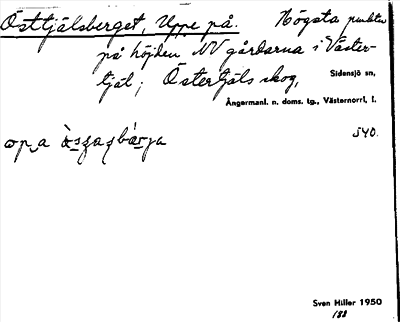 Östtjälsberget, Uppe på. Högsta punkten
på höjden NV gårdarna i Väster-
tjäl; Östertjäls skog, Sidensjö sn,
Ångermanl. n. doms. tg., Västernorrl. l.
540.
Sven Hiller 1950
182